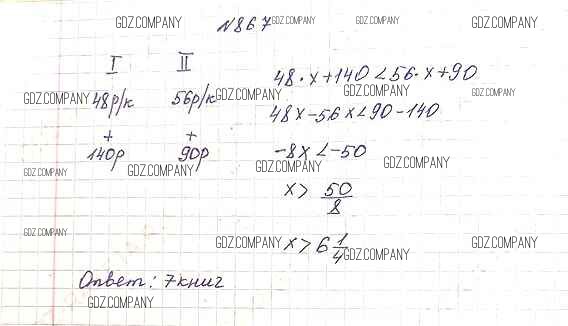 GDZ.COMPANY N867 GDZ.COMPANY GDZ.COMPANY GDZ.COMPANY
I II
48·x+140<56·x+90
GDZ.COMPANY 48р/к 56р/к GDZ.COMPANY GDZ.COMPANY GDZ.COMPANY
48x-56x<90-140
+ +
140р 90р
-8x<-50
GDZ.COMPANY GDZ.COMPANY GDZ.COMPANY GDZ.COMPANY
x> 50/8
GDZ.COMPANY
x>6 1/4
GDZ.COMPANY GDZ.COMPANY GDZ.COMPANY
Ответ: 7книг
GDZ.COMPANY